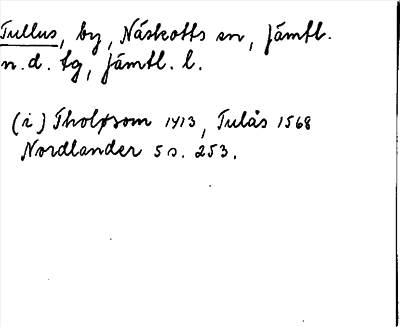 Tullus, by, Näskotts sn, Jämtl.
n. d. tg, Jämtl. l.
(i) Tholosom 1413, Tulås 1568
Nordlander 5 s. 253.